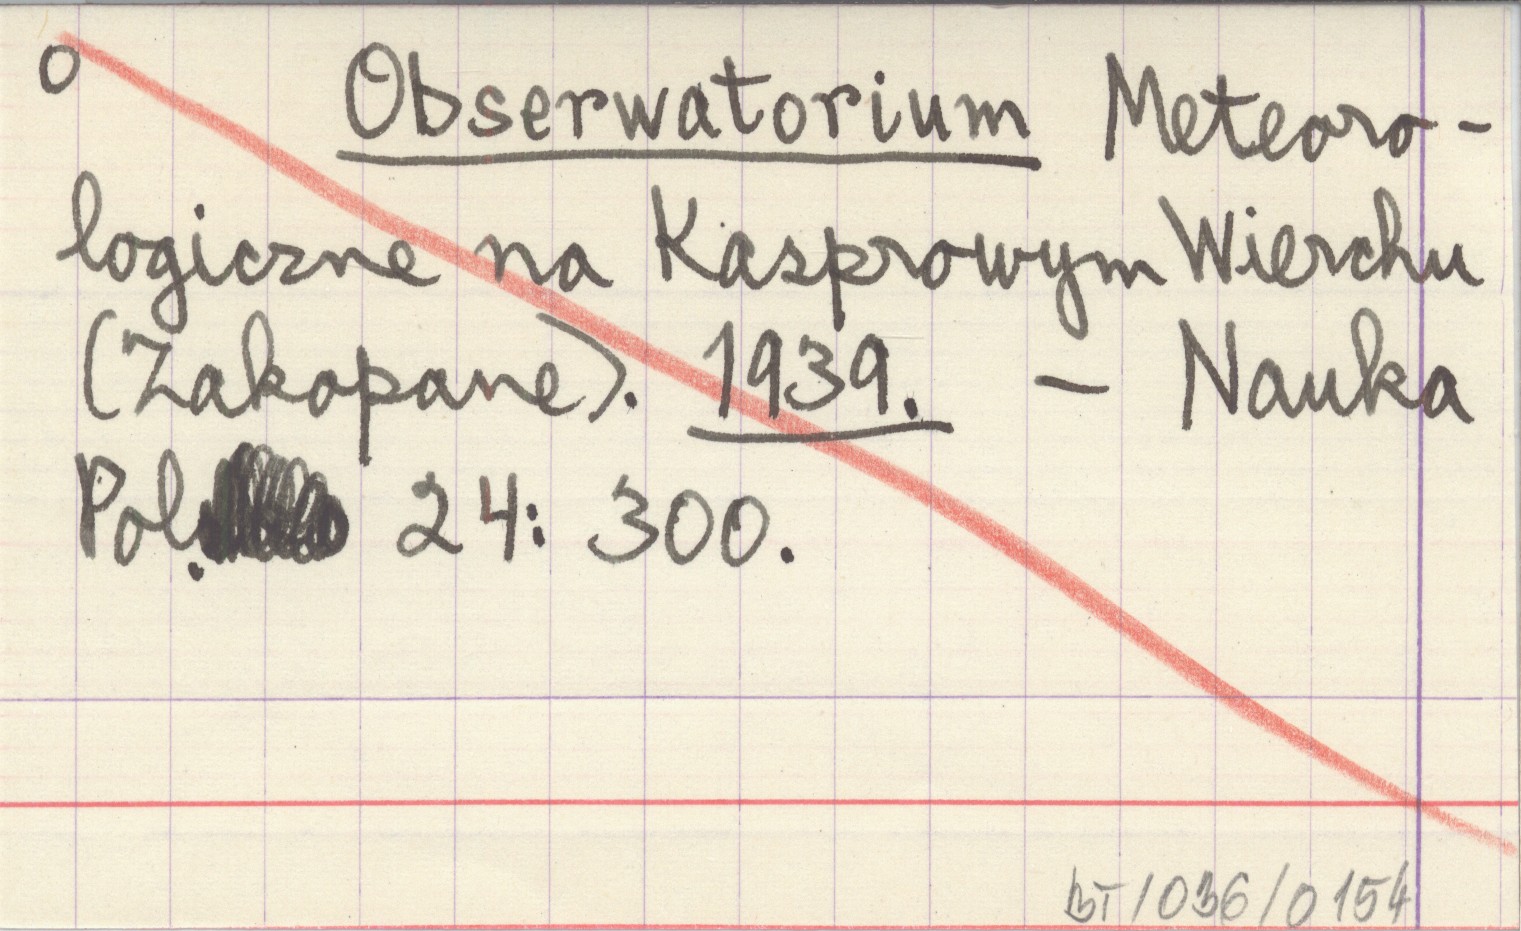 o Obserwatorium Meteoro-
logiczne na Kasprowym Wierchu
(Zakopane). 1939. — Nauka
Pol. 24: 300.
BT/036/0154